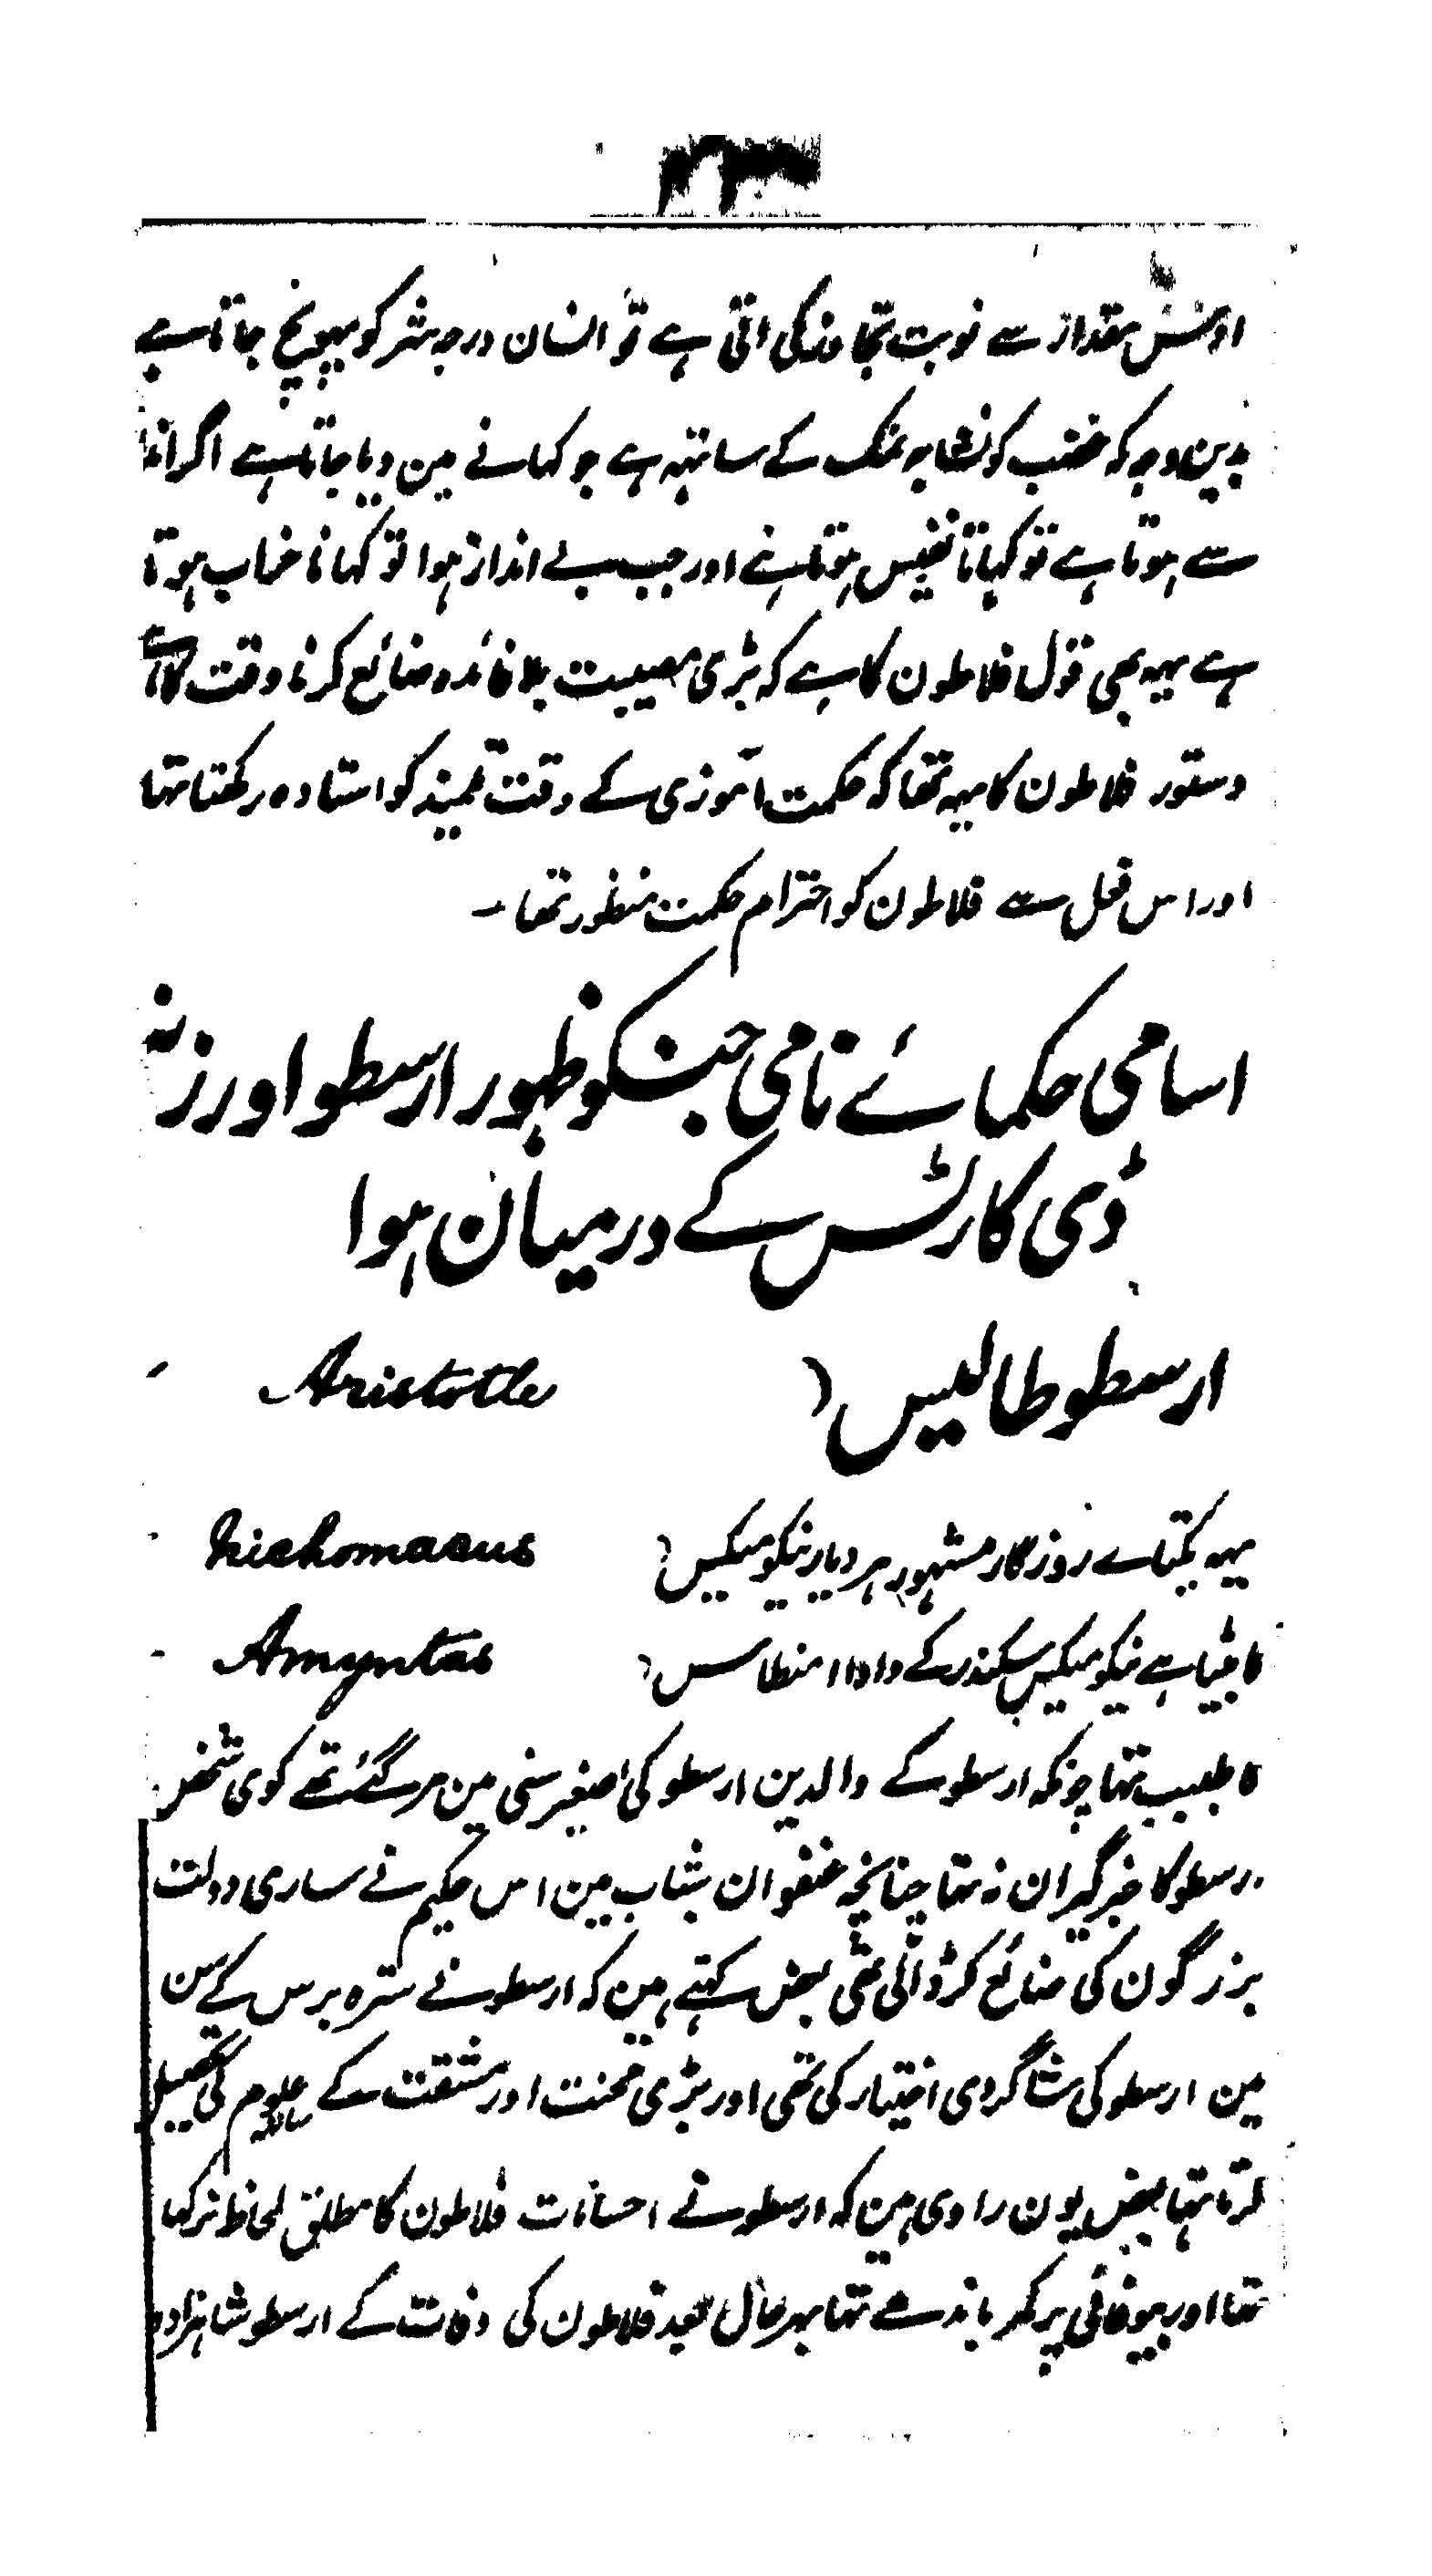 اوس مقدار سے نوبت تجاوز کی اتی ہے تو انسان درجہ شر کو پہونچ جاتا ہے
بدین وجہ کہ غضب کو تشابہ نمک کے ساتہہ ہے جو کہانے مین دیا جاتا ہے اگر
سے ہوتا ہے تو کہانا نفیس ہوتا ہے اور جب بے انداز ہوا تو کہانا خراب ہوتا
ہے یہہ بھی قول فلاطون کا ہے کہ بڑی مصیبت بلا فائدہ ضائع کرنا وقت کا ہے
دستور فلاطون کا یہہ تھا کہ حکمت آموزی کے وقت تلمیذ کو استادہ رکھتا تہا
اور اس فعل سے فلاطون کو احترام حکمت منظور تھا ۔
اسامی حکمائے نامی جنکو ظہور ارسطو اور زنہ
ڈی کارٹس کے درمیان ہوا
ارسطوطالیس ( Aristotle
یہہ یکتاے روزگار مشہور ہر دیار نیکومیکس ( Nichomacus
کا بیٹیا ہے نیکومیکس سکندر کے دادا امنطاس ( Amyntas
کا طبیب تہا چونکہ ارسطو کے والدین ارسطو کی صغیر سنی مین مر گئے تھے کوی شخص
ارسطو کا خبر گیران نہ تہا چنانچہ عنفوان شباب مین اس حکیم نے ساری دولت
بزرگون کی ضائع کر ڈالی تھی بعض کہتے ہین کہ ارسطو نے سترہ برس کے سن
مین ارسطو کی شاگردی اختیار کی تھی اور بڑی محنت اور مشقت کے ساتہہ علوم کی تحصیل
کرتا تہا بعض یون راوی ہین کہ ارسطو نے احسانات فلاطون کا مطلق لحاظ نرکہا
تھا اور بیوفائی پر کمر باندھے تہا بہرحال بعد فلاطون کی وفات کے ارسطو شاہزادہ